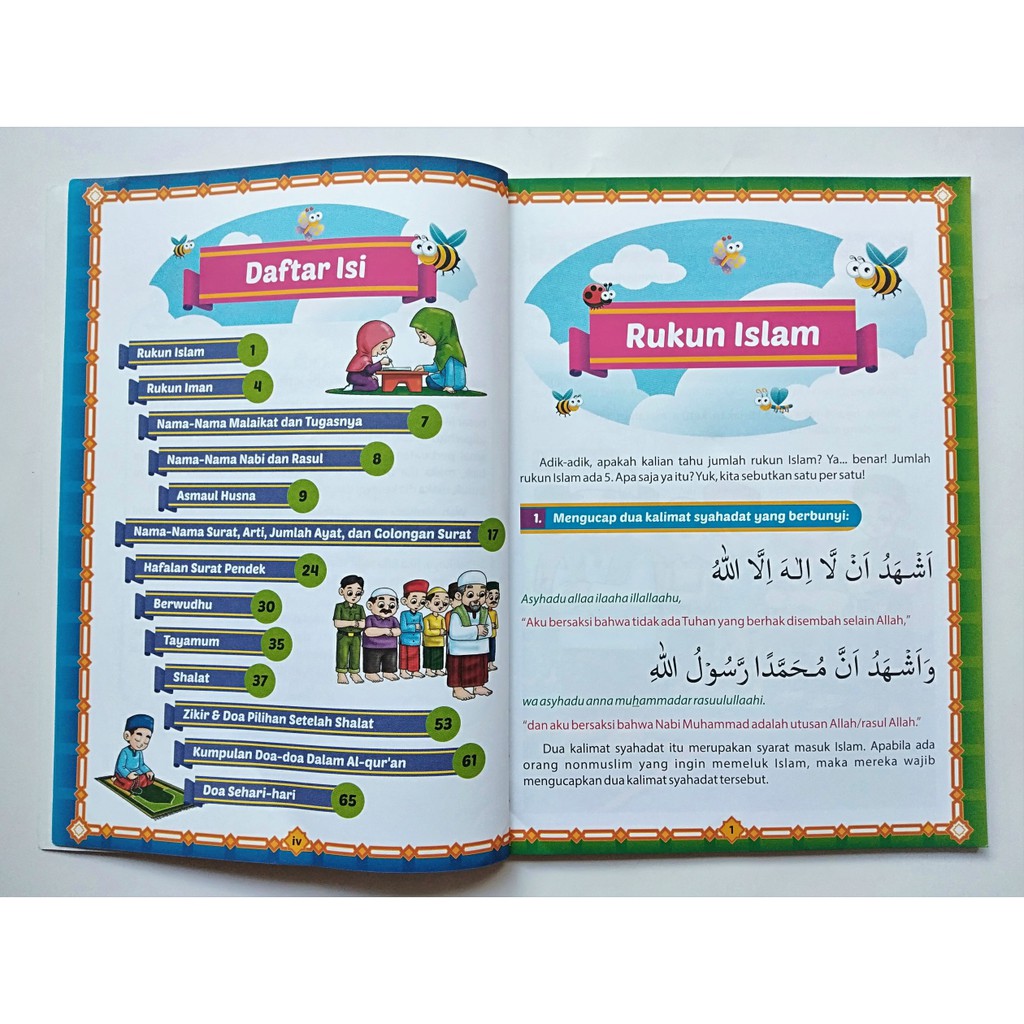 Daftar Isi
Rukun Islam 1
Rukun Iman 4
Nama-Nama Malaikat dan Tugasnya 7
Nama-Nama Nabi dan Rasul 8
Asmaul Husna 9
Nama-Nama Surat, Arti, Jumlah Ayat, dan Golongan Surat 17
Hafalan Surat Pendek 24
Berwudhu 30
Tayamum 35
Shalat 37
Zikir & Doa Pilihan Setelah Shalat 53
Kumpulan Doa-doa Dalam Al-qur'an 61
Doa Sehari-hari 65
iv
Rukun Islam
Adik-adik, apakah kalian tahu jumlah rukun Islam? Ya... benar! Jumlah
rukun Islam ada 5. Apa saja ya itu? Yuk, kita sebutkan satu per satu!
1. Mengucap dua kalimat syahadat yang berbunyi:
اَشْهَدُ اَنْ لَّا اِلٰهَ اِلَّا اللّٰهُ
Asyhadu allaa ilaaha illallaahu,
"Aku bersaksi bahwa tidak ada Tuhan yang berhak disembah selain Allah,"
وَاَشْهَدُ اَنَّ مُحَمَّدًا رَّسُوْلُ اللّٰهِ
wa asyhadu anna muhammadar rasuulullaahi.
"dan aku bersaksi bahwa Nabi Muhammad adalah utusan Allah/rasul Allah."
Dua kalimat syahadat itu merupakan syarat masuk Islam. Apabila ada
orang nonmuslim yang ingin memeluk Islam, maka mereka wajib
mengucapkan dua kalimat syahadat tersebut.
1